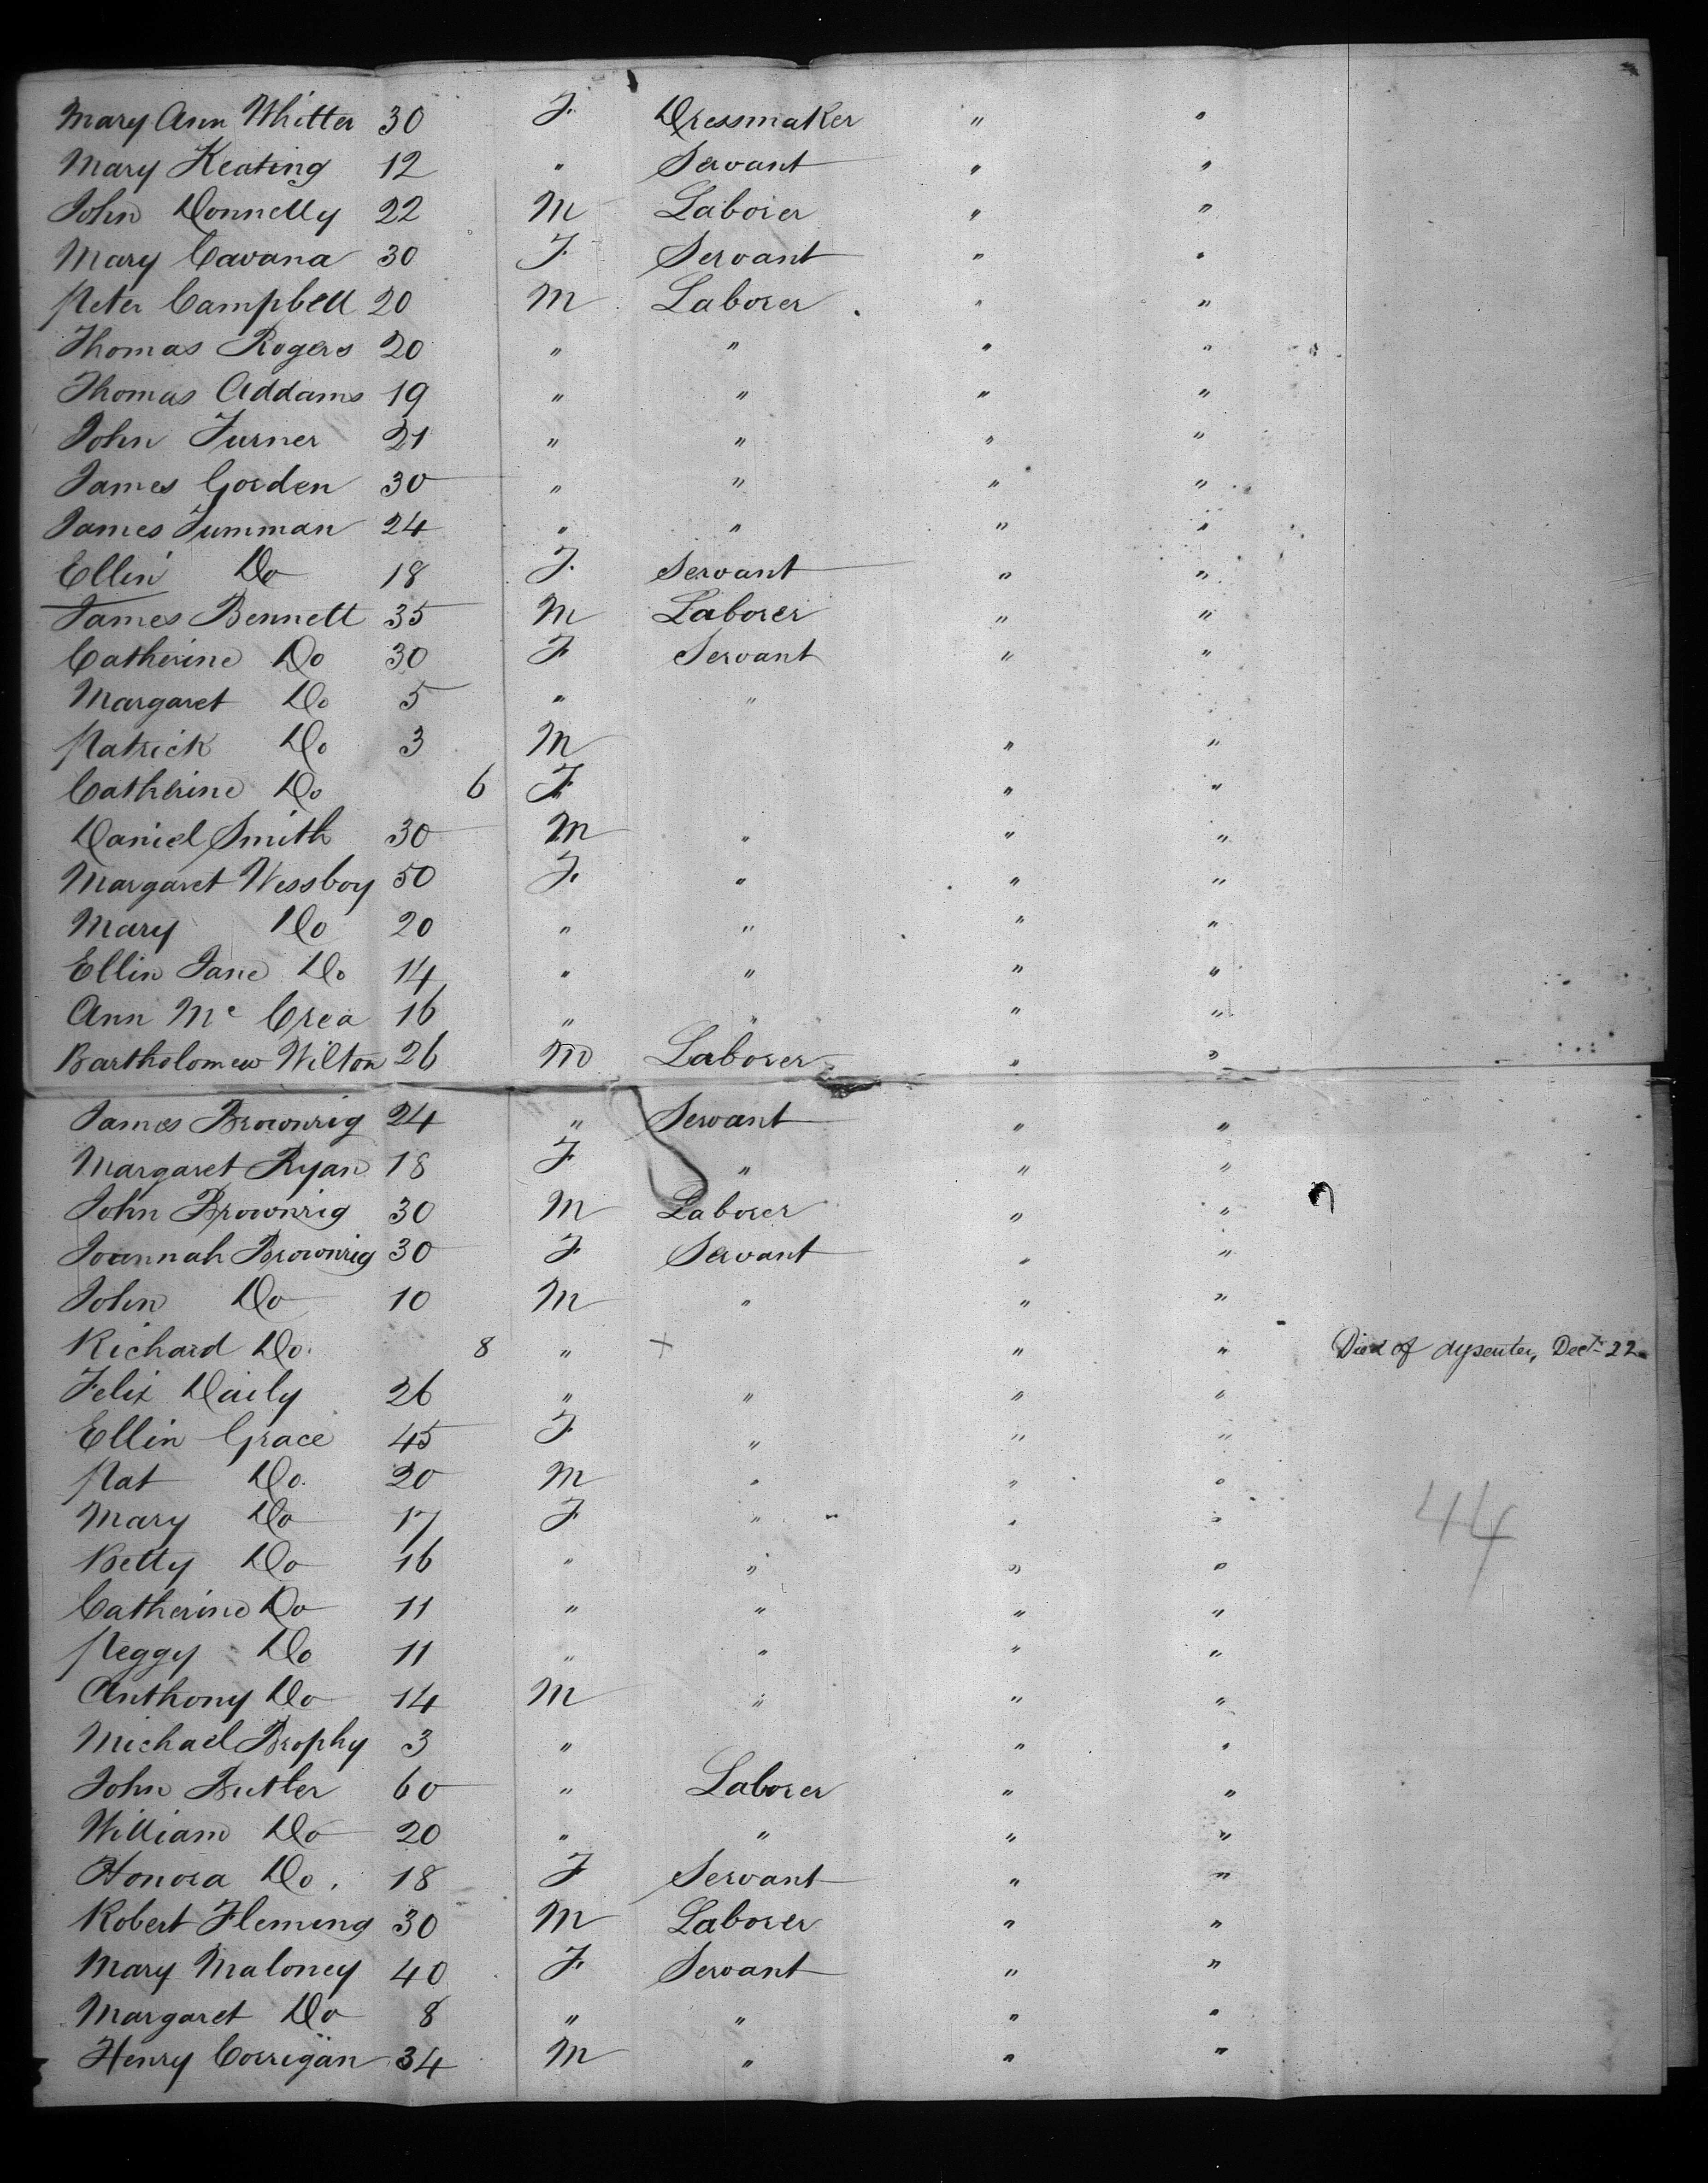 Mary Ann Whitter 30 F. Dressmaker " "
Mary Keating 12 " Servant " "
John Donnelly 22 M Laborer " "
Mary Cavana 30 F. Servant " "
Peter Campbell 20 M Laborer " "
Thomas Rogers 20 " " " "
Thomas Addams 19 " " " "
John Turner 21 " " " "
James Gorden 30 " " " "
James Tumman 24 " " " "
Ellin Do 18 F. Servant " "
James Bennett 35 M Laborer " "
Catherine Do 30 F Servant " "
Margaret Do 5 " "
Patrick Do 3 M " "
Catherine Do 6 F " "
Daniel Smith 30 M " " "
Margaret Wessboy 50 F. " " "
Mary Do 20 " " " "
Ellin Jane Do 14 " " " "
Ann Mc Crea 16 " " " "
Bartholomew Wilton 26 M Laborer " "
James Brownrig 24 " Servant " "
Margaret Ryan 18 F " " "
John Brownrig 30 M Laborer " "
Joannah Brownrig 30 F Servant " "
John Do 10 M " " "
Richard Do. 8 " + " " Died of dysenter, Decr 22
Felix Daily 26 " " " "
Ellin Grace 45 F " " "
Pat Do. 20 M " " "
Mary Do 17 F " " "
44
Betty Do 16 " " " "
Catherine Do 11 " " " "
Peggy Do 11 " " " "
Anthony Do 14 M " " "
Michael Brophy 3 " " "
John Butler 60 " Laborer " "
William Do 20 " " " "
Honora Do. 18 F Servant " "
Robert Fleming 30 M Laborer " "
Mary Maloney 40 F. Servant " "
Margaret Do 8 " " " "
Henry Corrigan 34 M " " "